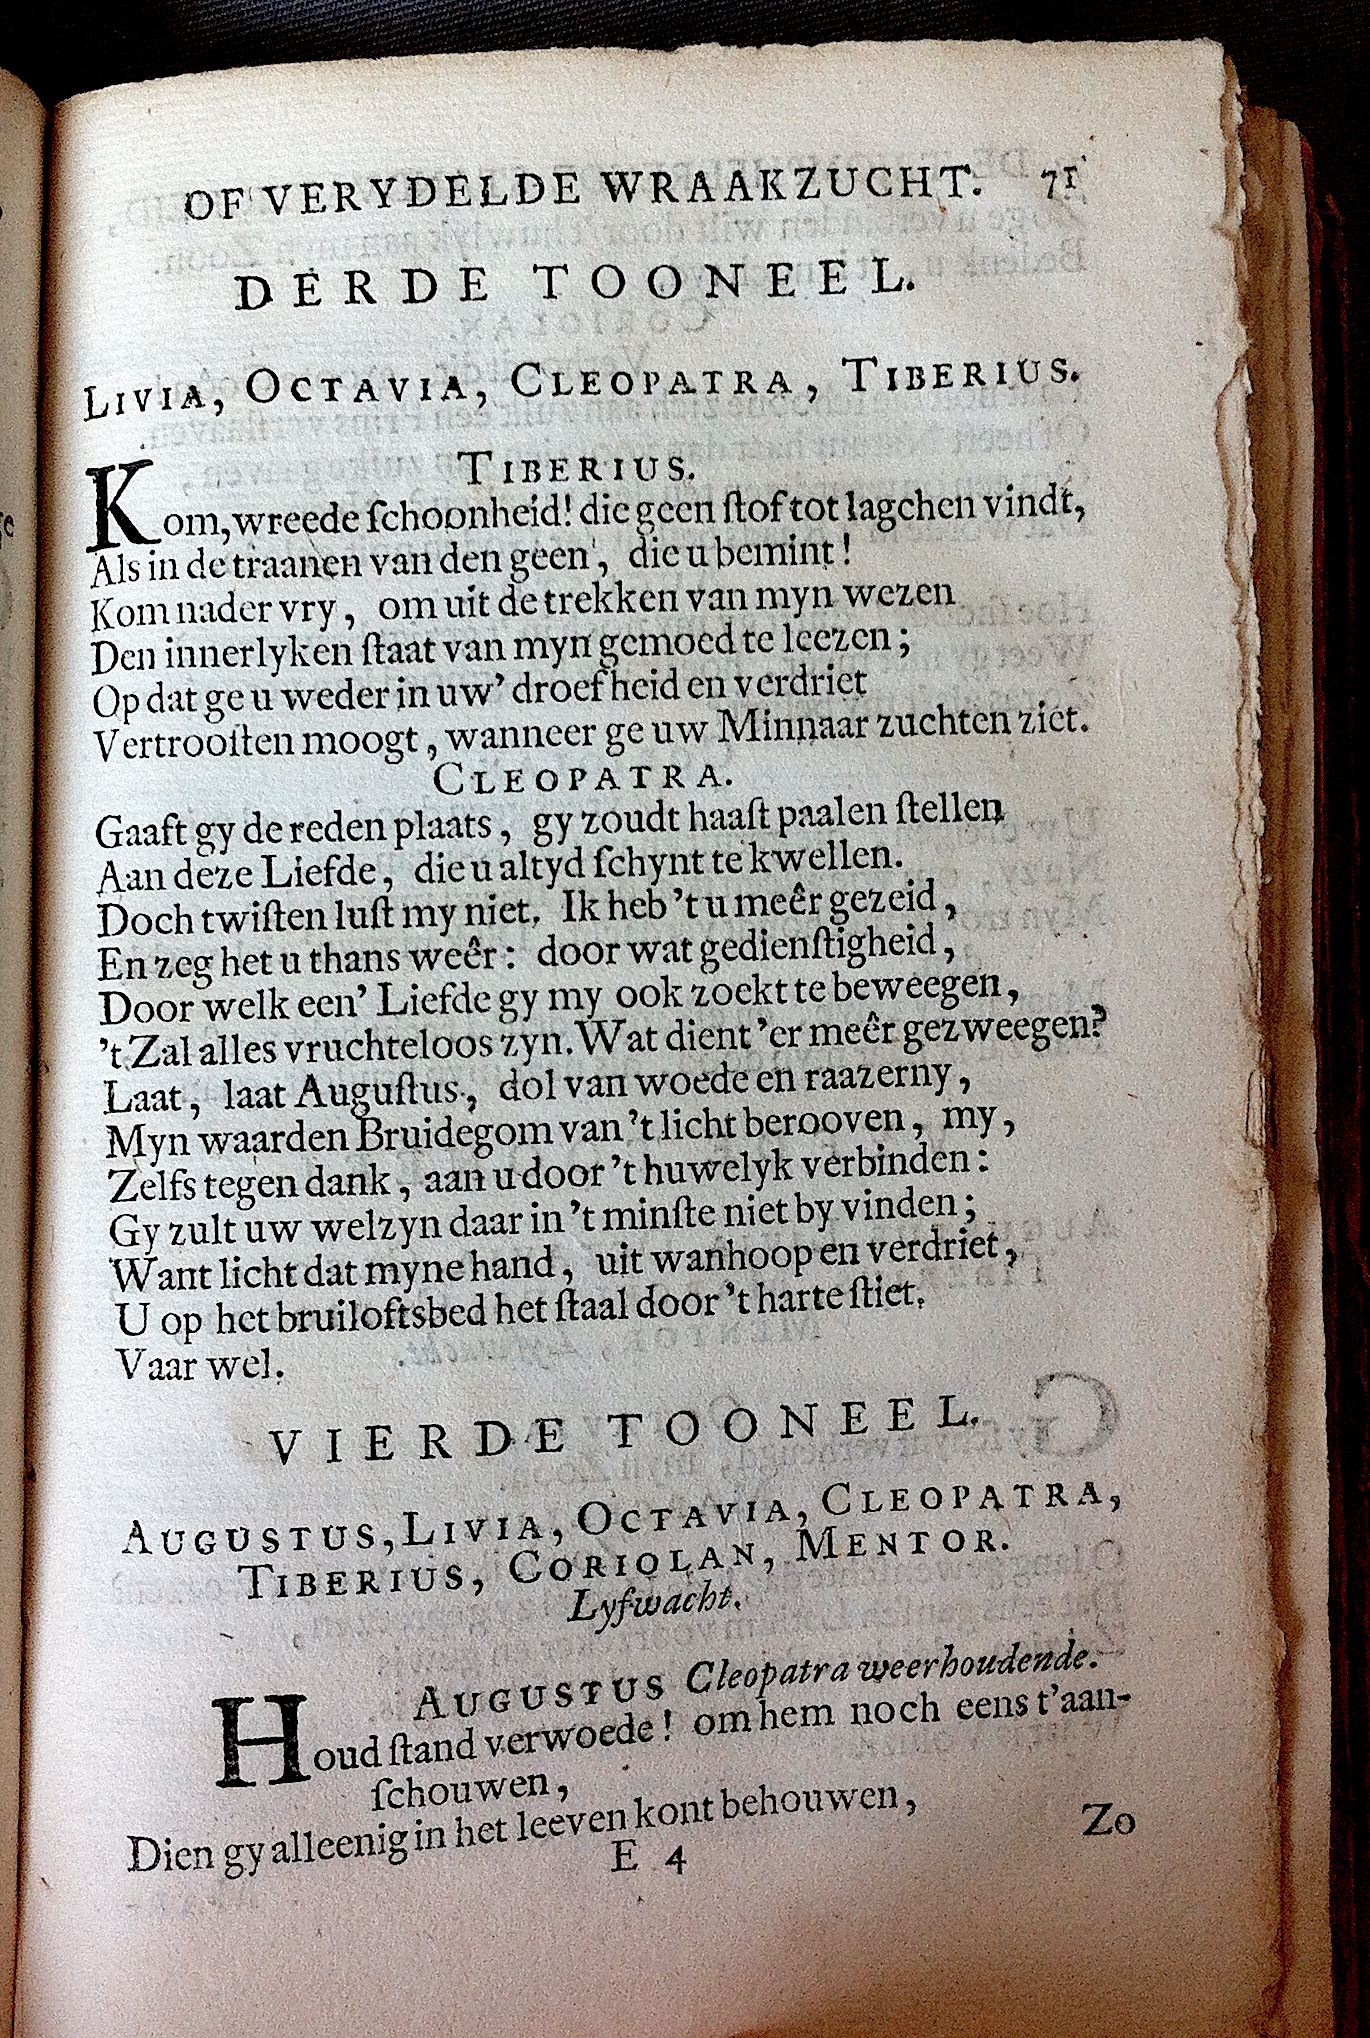 OF VERYDELDE WRAAKZUCHT. 71
DERDE TOONEEL.
LIVIA, OCTAVIA, CLEOPATRA, TIBERIUS.
TIBERIUS.
Kom, wreede ſchoonheid! die geen ſtof tot lagchen vindt,
Als in de traanen van den geen, die u bemint!
Kom nader vry, om uit de trekken van myn wezen
Den innerlyken ſtaat van myn gemoed te leezen;
Op dat ge u weder in uw’ droefheid en verdriet
Vertrooſten moogt, wanneer ge uw Minnaar zuchten ziet.
CLEOPATRA.
Gaaft gy de reden plaats, gy zoudt haaſt paalen ſtellen
Aan deze Liefde, die u altyd ſchynt te kwellen.
Doch twiſten luſt my niet. Ik heb ’t u meêr gezeid,
En zeg het u thans weêr: door wat gedienſtigheid,
Door welk een’ Liefde gy my ook zoekt te beweegen,
’t Zal alles vruchteloos zyn. Wat dient ’er meêr gezweegen?
Laat, laat Auguſtus, dol van woede en raazerny,
Myn waarden Bruidegom van ’t licht berooven, my,
Zelfs tegen dank, aan u door ’t huwelyk verbinden:
Gy zult uw welzyn daar in ’t minſte niet by vinden;
Want licht dat myne hand, uit wanhoop en verdriet,
U op het bruiloftsbed het ſtaal door ’t harte ſtiet.
Vaar wel.
VIERDE TOONEEL.
AUGUSTUS, LIVIA, OCTAVIA, CLEOPATRA,
TIBERIUS, CORIOLAN, MENTOR.
Lyfwacht.
AUGUSTUS Cleopatra weerhoudende.
Houd ſtand verwoede! om hem noch eens t’aan-
ſchouwen,
Dien gy alleenig in het leeven kont behouwen,
E 4 Zo